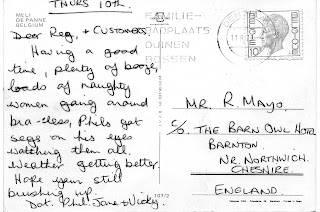 THURS 10TH.
MELI
DE PANNE
BELGIUM
Dear Reg, + CUSTOMERS
Having a good
time, plenty of booze,
loads of naughty
women gang around
bra-less, Phils got
segs on his eyes
watching them all.
Weather getting better.
Hope your still
brushing up.
Dot. Phil. Jane & Nicky.
107/2
FAMILIE-
BADPLAATS
DUINEN
BOSSEN
MR. R. MAYO,
C/O. THE BARN OWL HOTEL
BARNTON.
NR. NORTHWICH.
CHESHIRE.
ENGLAND.